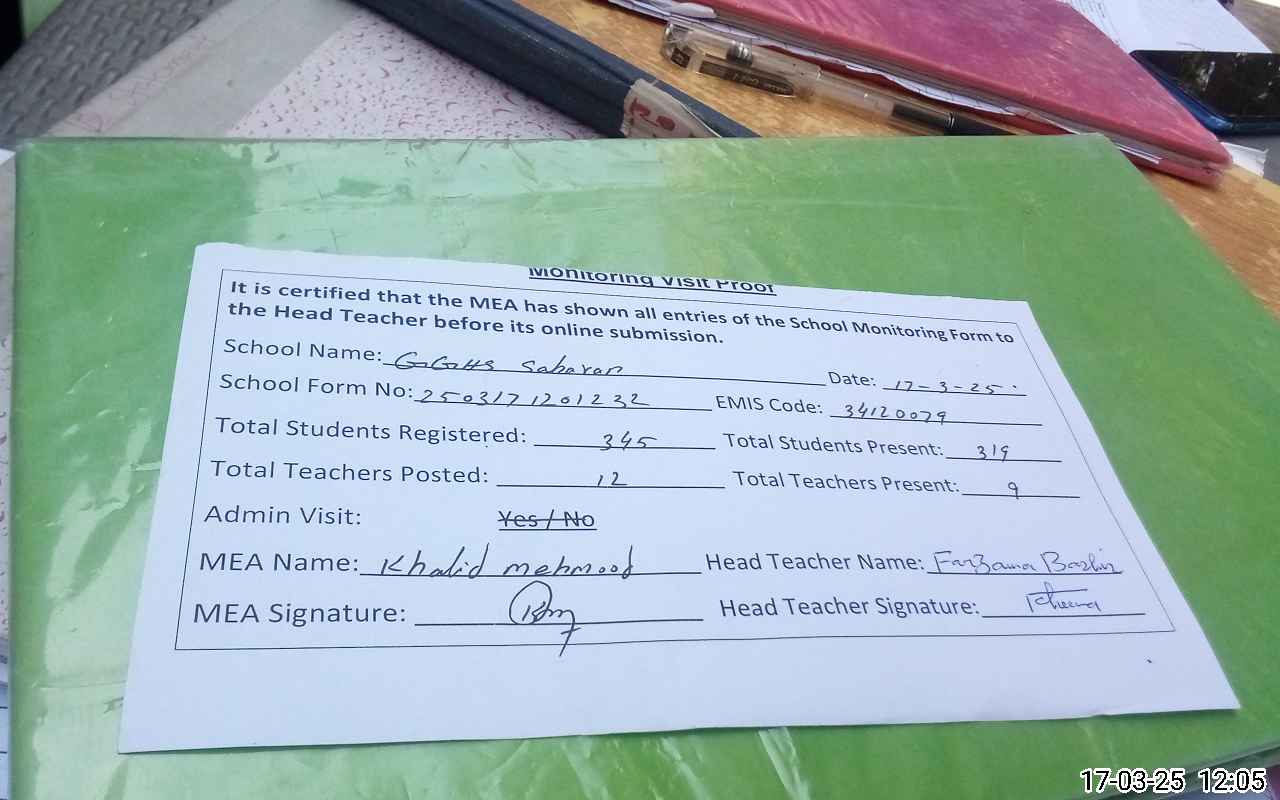 Monitoring Visit Proof
It is certified that the MEA has shown all entries of the School Monitoring Form to
the Head Teacher before its online submission.
School Name: GGHS Saharan Date: 17-3-25
School Form No: 2503171201232 EMIS Code: 34120079
Total Students Registered: 345 Total Students Present: 319
Total Teachers Posted: 12 Total Teachers Present: 9
Admin Visit: Yes / No
MEA Name: Khalid mehmood Head Teacher Name: Farzana
MEA Signature: Head Teacher Signature:
17-03-25 12:05